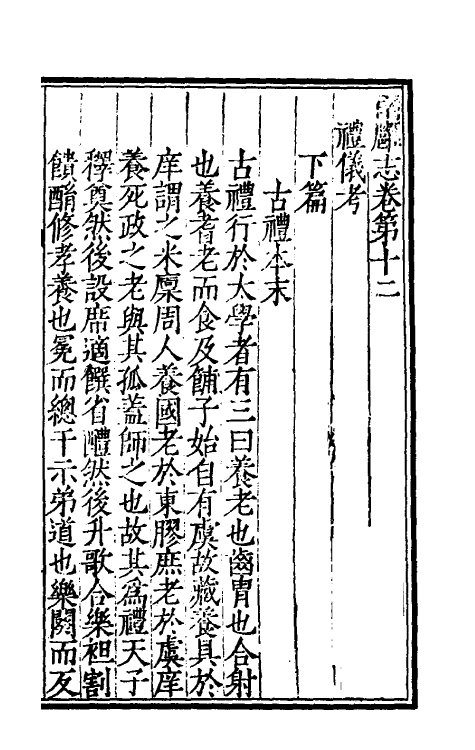 雝志卷第十二
禮儀考
下篇
古禮本末
古禮行於太學者有三曰養老也齒胄也合射
也養耆老而食及餔子始自有虞故藏養具於
庠謂之米廩周人養國老於東膠庶老於虞庠
養死政之老與其孤蓋師之也故其爲禮天子
釋奠然後設席適饌省醴然後升歌合樂袒割
饋酳修孝養也冕而總干示弟道也樂闋而反